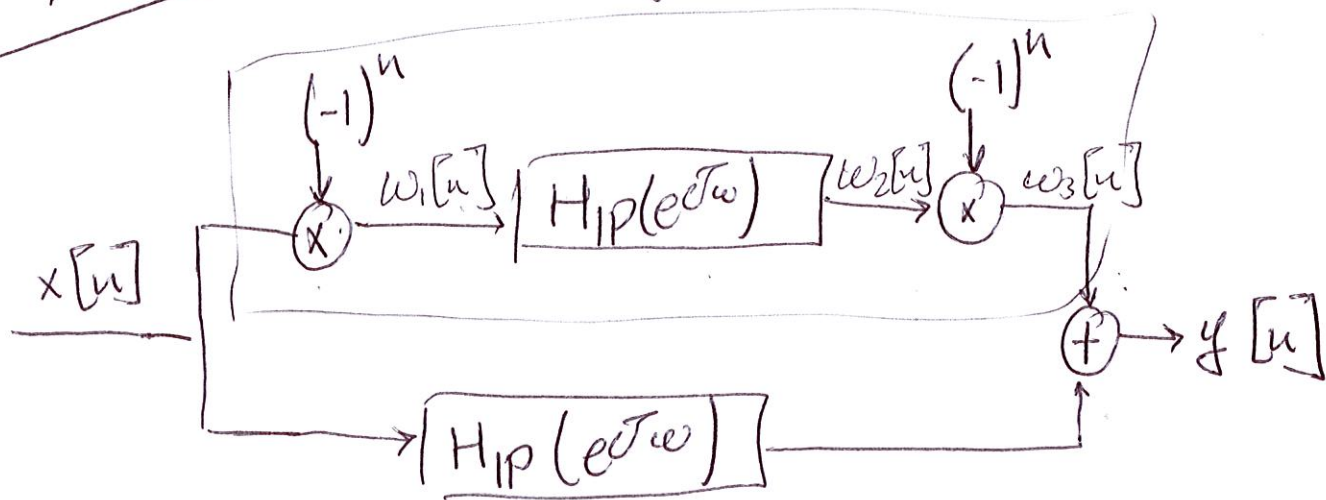 (-1)^n (-1)^n
w₁[n] H_lp(e^jω) w₂[n] x w₃[n]
x
x[n]
+ y[n]
H_lp(e^jω)